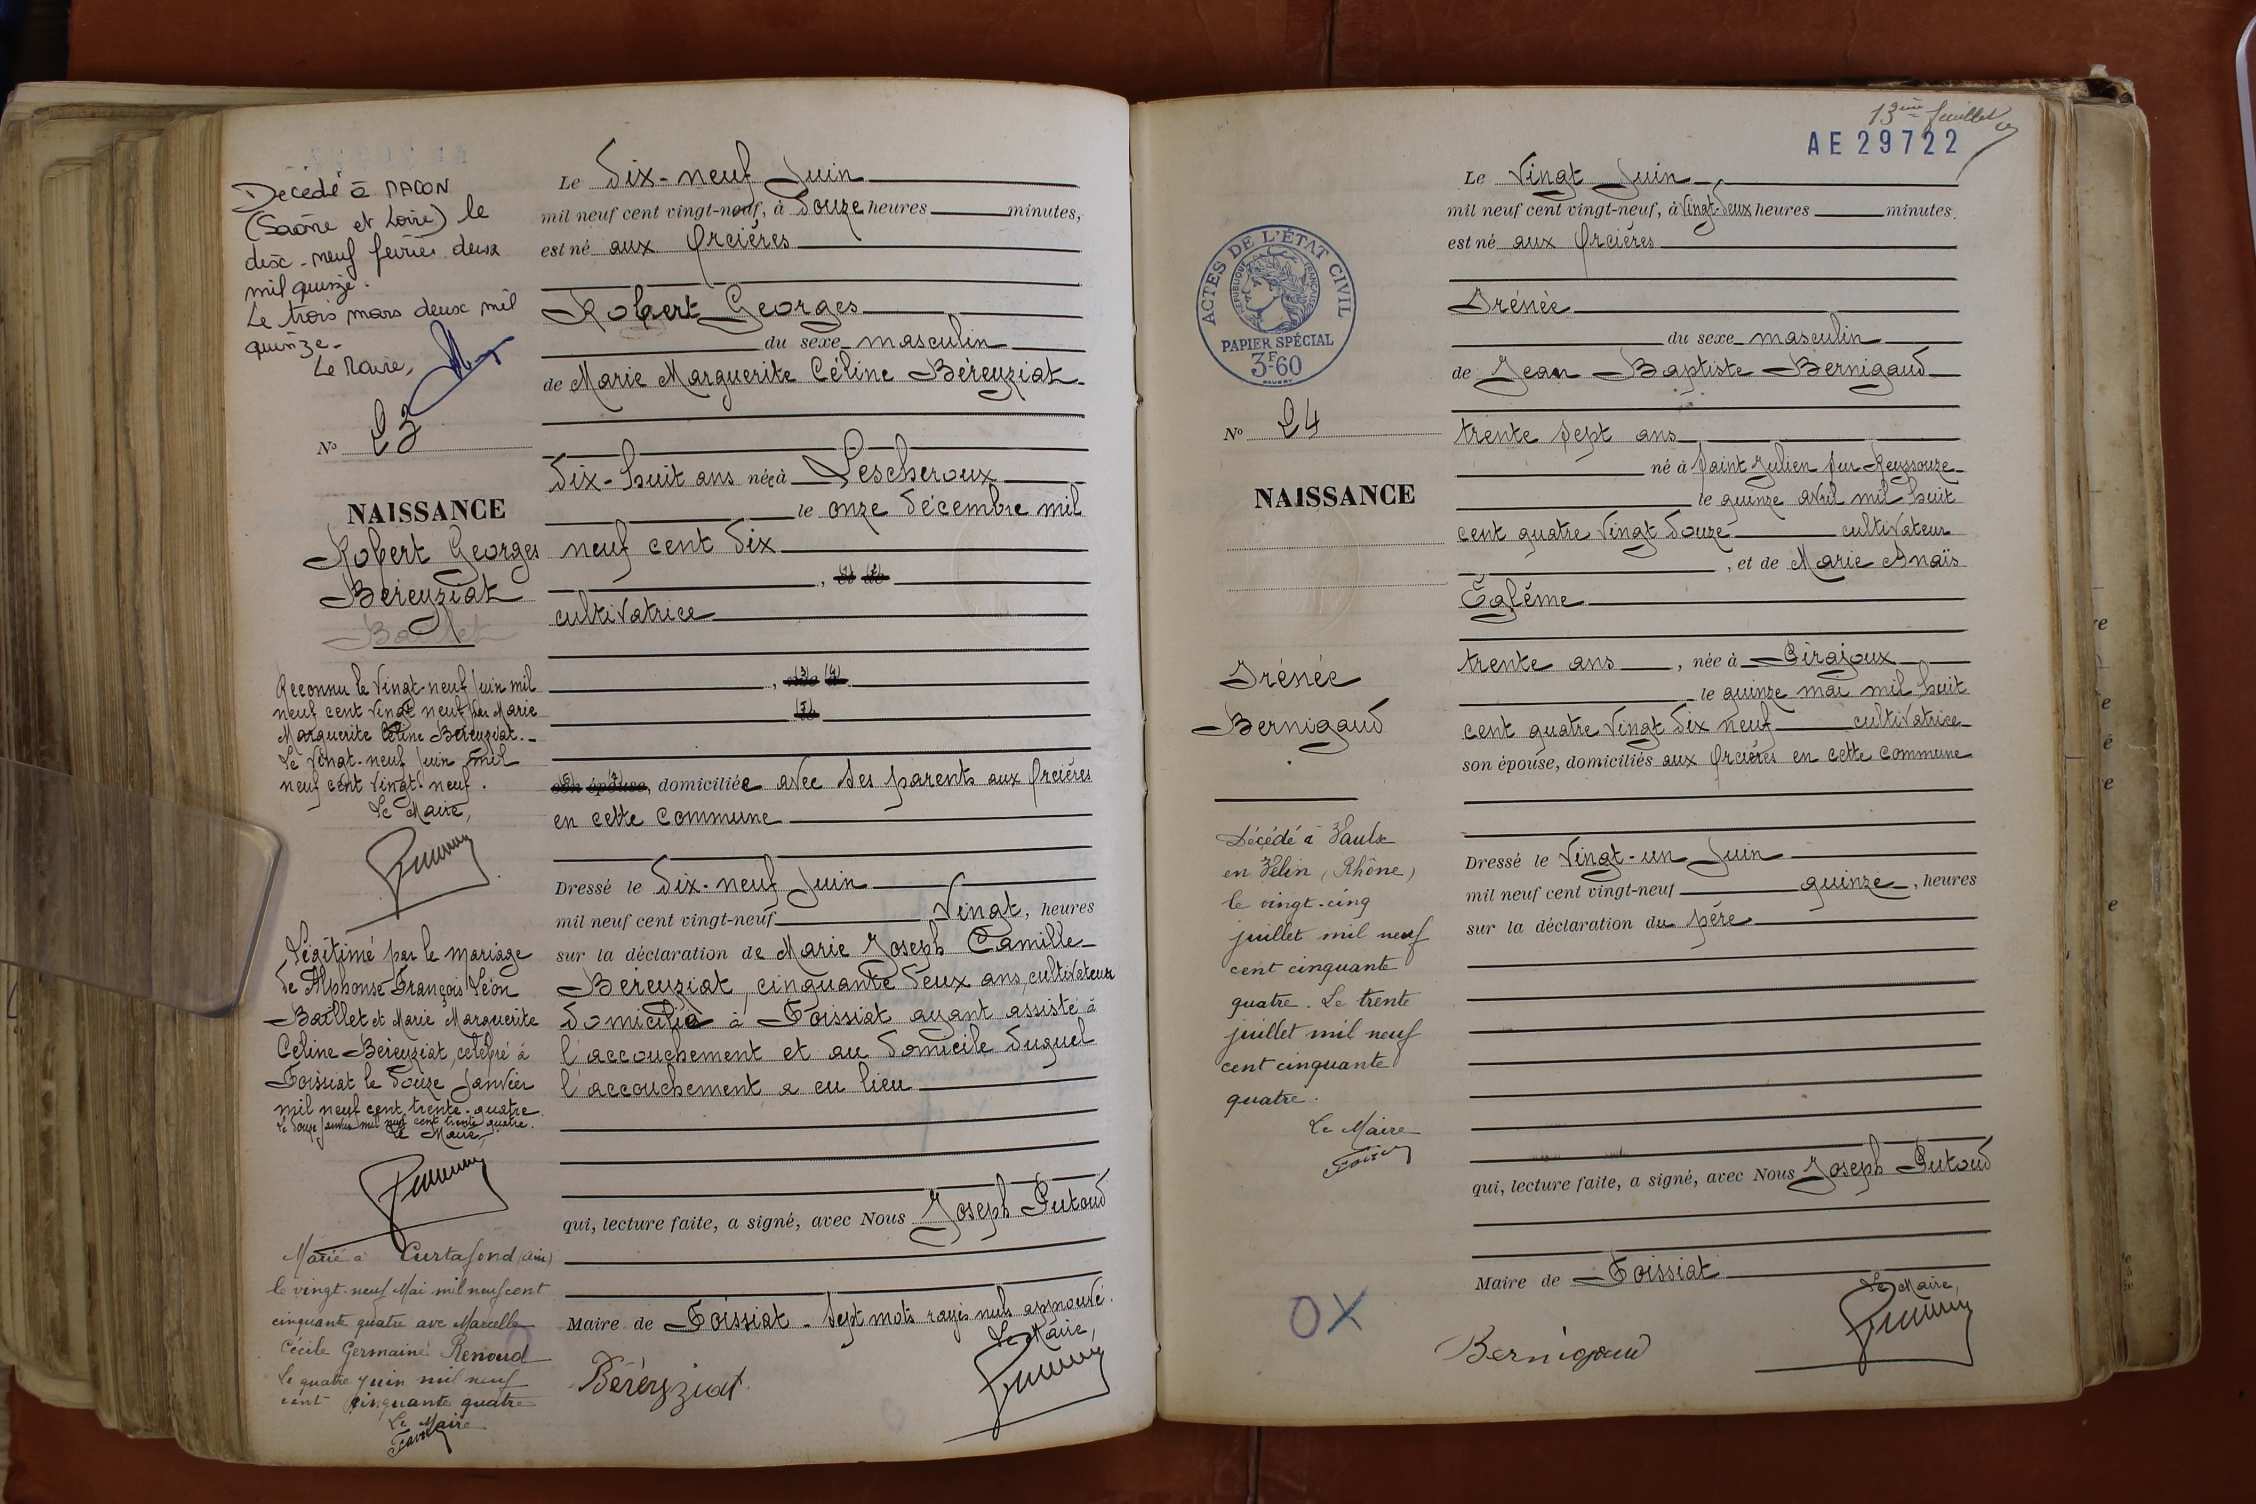 Décédé à MACON
(Saône et Loire) le
dix-neuf février deux
mil quinze.
Le trois mars deux mil
quinze-
Le Maire,
No 23
NAISSANCE
Robert Georges
Béréyziat
Baillet
Reconnu le Vingt-neuf Juin mil
neuf cent Vingt neuf par Marie
Marguerite Céline Béréyziat.-
Le Vingt-neuf Juin mil
neuf cent Vingt-neuf.
Le Maire,
Légitimé par le mariage
de Alphonse François Léon
Baillet et Marie Marguerite
Céline Béréyziat, célébré à
Foissiat le Douze Janvier
mil neuf cent trente-quatre.
Le Douze Janvier mil neuf cent trente quatre.
Le Maire,
Marié à Curtafond (Ain)
le vingt-neuf Mai mil neuf cent
cinquante quatre avec Marcelle
Cécile Germaine Renoud
Le quatre juin mil neuf
cent cinquante quatre
Le Maire
Le Dix-neuf Juin
mil neuf cent vingt-neuf, à Douze heures minutes,
est né aux Orcières
Robert Georges
du sexe masculin
de Marie Marguerite Céline Béréyziat
Dix-huit ans née à Lescheroux
le onze Décembre mil
neuf cent Dix
, et de
cultivatrice
son épouse, domiciliée avec ses parents aux Orcières
en cette commune
Dressé le Dix-neuf Juin
mil neuf cent vingt-neuf Vingt, heures
sur la déclaration de Marie Joseph Camille
Béréyziat, cinquante Deux ans, cultivateur
Domicilié à Foissiat ayant assisté à
l'accouchement et au Domicile Duquel
l'accouchement a eu lieu
qui, lecture faite, a signé, avec Nous Joseph Putoud
Maire de Foissiat - Sept mots rayés nuls approuvé.
Le Maire,
Béréyziat
13ème feuillet
AE 29722
ACTES DE L'ÉTAT CIVIL
RÉPUBLIQUE FRANÇAISE
PAPIER SPÉCIAL
3F60
No 24
NAISSANCE
Irénée
Bernigaud
Décédé à Vaulx
en Velin (Rhône)
le vingt-cinq
juillet mil neuf
cent cinquante
quatre. Le trente
juillet mil neuf
cent cinquante
quatre.
Le Maire
OX
Le Vingt Juin
mil neuf cent vingt-neuf, à Vingt-Deux heures minutes.
est né aux Orcières
Irénée
du sexe masculin
de Jean Baptiste Bernigaud
trente sept ans
né à Saint Julien sur Reyssouze
le quinze avril mil huit
cent quatre Vingt Douze cultivateur
, et de Marie Anaïs
Egléme
trente ans, née à Cirajoux
le quinze mai mil huit
cent quatre Vingt Dix neuf cultivatrice
son épouse, domiciliés aux Orcières en cette commune
Dressé le Vingt-un Juin
mil neuf cent vingt-neuf quinze, heures
sur la déclaration du père
qui, lecture faite, a signé, avec Nous Joseph Putoud
Maire de Foissiat
Le Maire,
Bernigaud